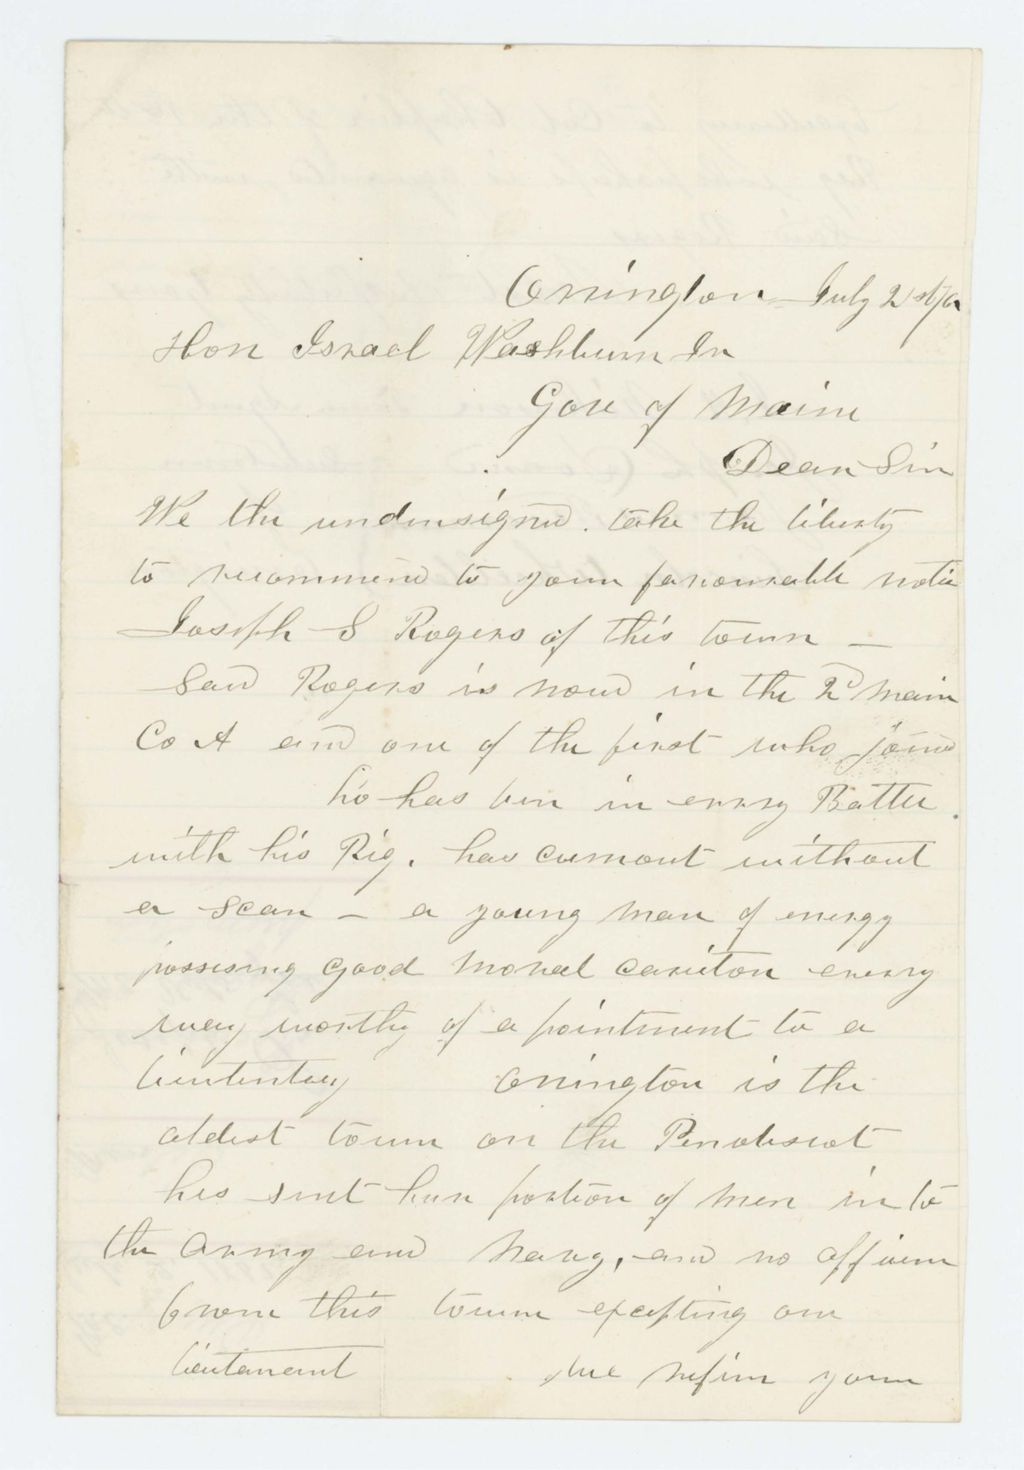 Orrington July 21st/62
Hon Israel Washburn Jr
Gove of Maine
Dear Sir
We the undersigned. take the liberty
to recommend to your favourable notice
Joseph S Rogers of this town —
Said Rogers is now in the 2d Maine
Co A and one of the first who joined
he has ben in every Battle.
with his Rig. has cumout without
a scar — a young man of energy
possesing good moral carictor every
way worthy of a pointment to a
Orrington is the
oldest town on the Penobscot
has sent hur portion of men in to
the Army and Navy, and no officer
from this town excepting one
lieutanant we refur your